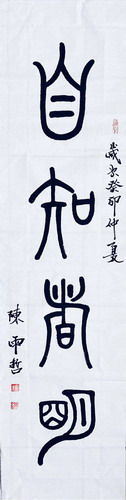 自知者明
歲次癸卯仲夏
陳雨哲